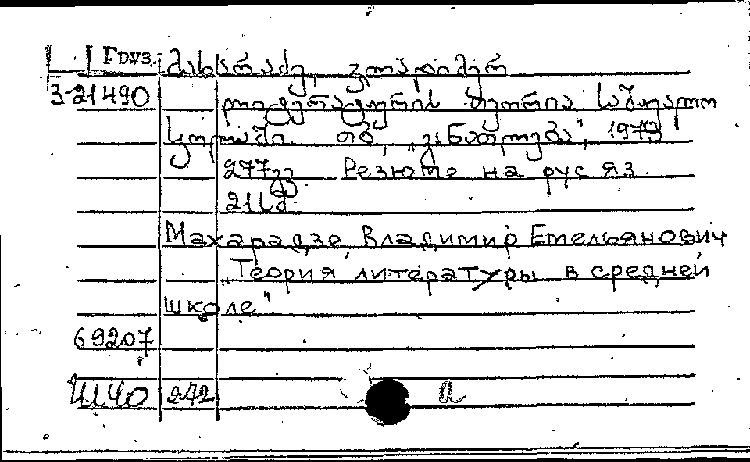 Груз. მახარაძე, ვლადიმერ
3-21490 ლიტერატურის თეორია საშუალო
სკოლაში. თბ., „განათლება", 1973
277გვ Резюме на рус яз.
Махарадзе, Владимир Емельянович
"Теория литературы в средней
школе"
69207
242 а